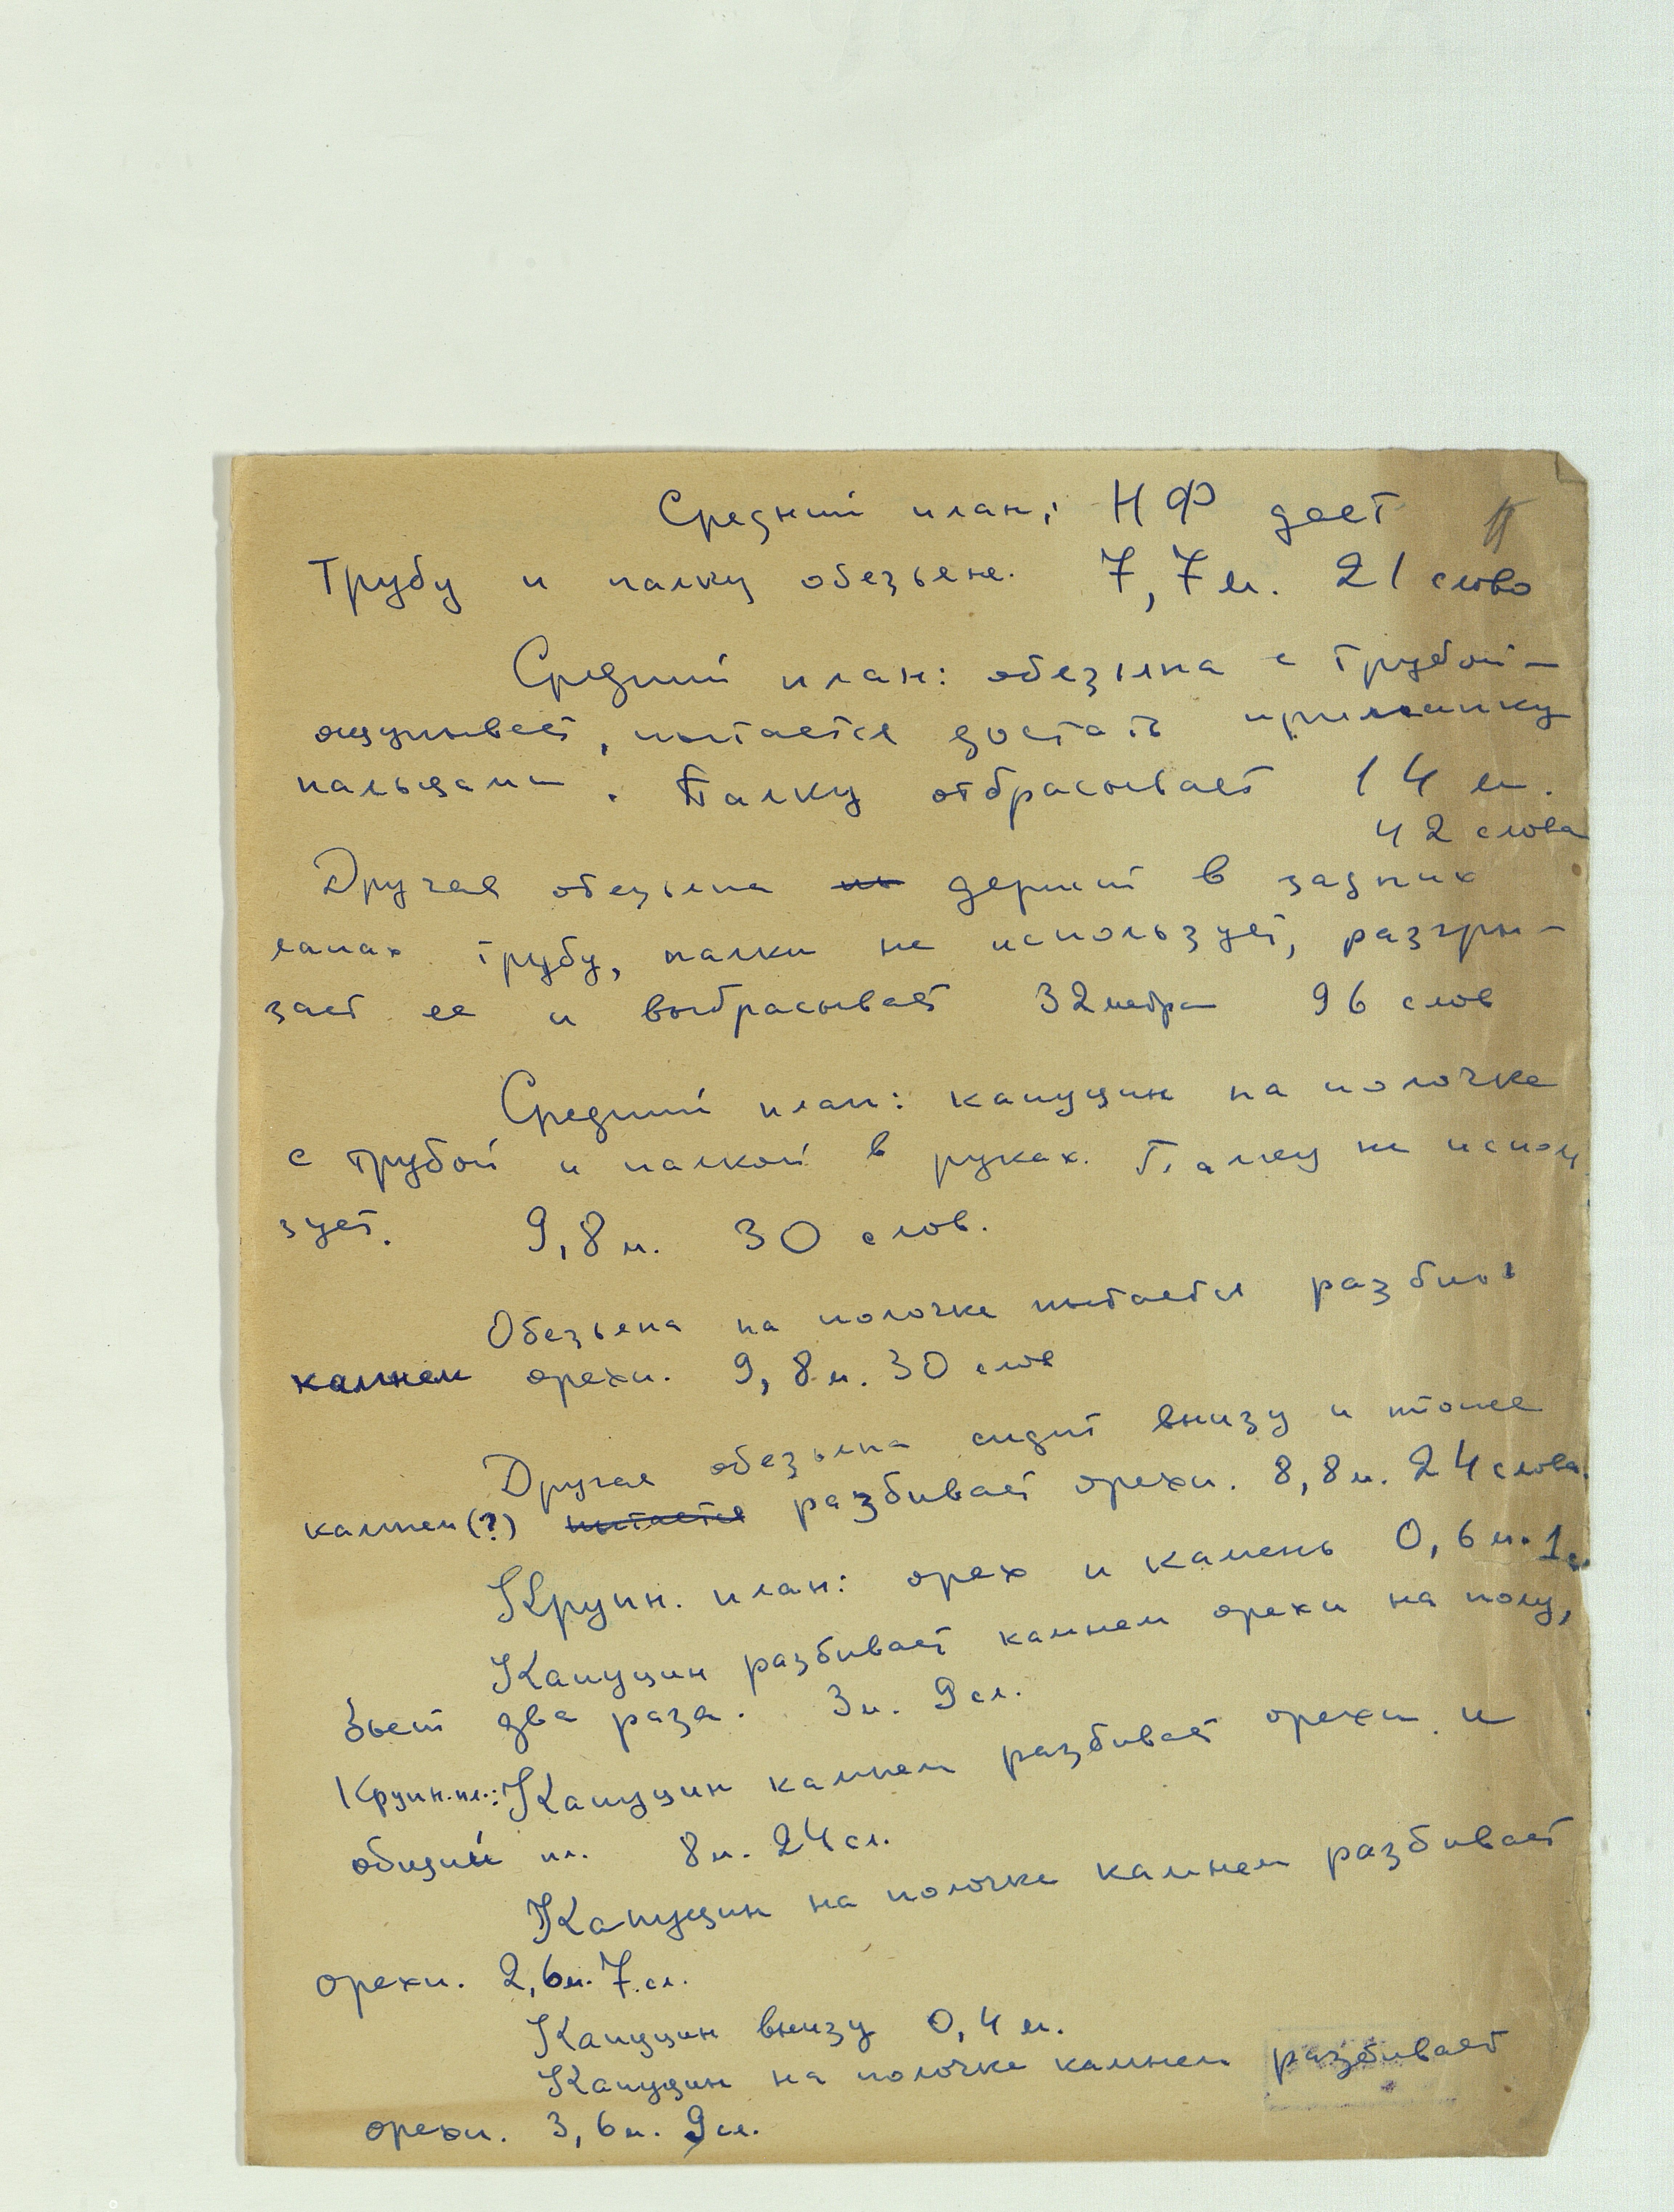 Средний план: НФ дает
Трубу и палку обезьяне. 7,7 м. 21 слово
Средний план: обезьяна с трубой –
ощупывает, пытается достать приманку
пальцами. Палку отбрасывает 14 м.
42 слова
Другая обезьяна держит в задних
лапах трубу, палки не использует, разгры-
зает ее и выбрасывает 32 метра 96 слов
Средний план: капуцин на полочке
с трубой и палкой в руках. Палку не исполь
зует. 9,8 м. 30 слов.
Обезьяна на полочке пытается разбить
камнем орехи. 9,8 м. 30 слов
Другая обезьяна сидит внизу и тоже
камнем (?) пытается разбивает орехи. 8,8 м. 24 слова.
Крупн. план: орех и камень 0,6 м. 1 с.
Капуцин разбивает камнем орехи на полу,
бьет два раза. 3 м. 9 сл.
Крупн. пл.: Капуцин камнем разбивает орехи и
общий пл. 8 м. 24 сл.
Капуцин на полочке камнем разбивает
орехи. 2,6 м. 7 сл.
Капуцин внизу 0,4 м.
Капуцин на полочке камнем разбивает
орехи. 3,6 м. 9 сл.